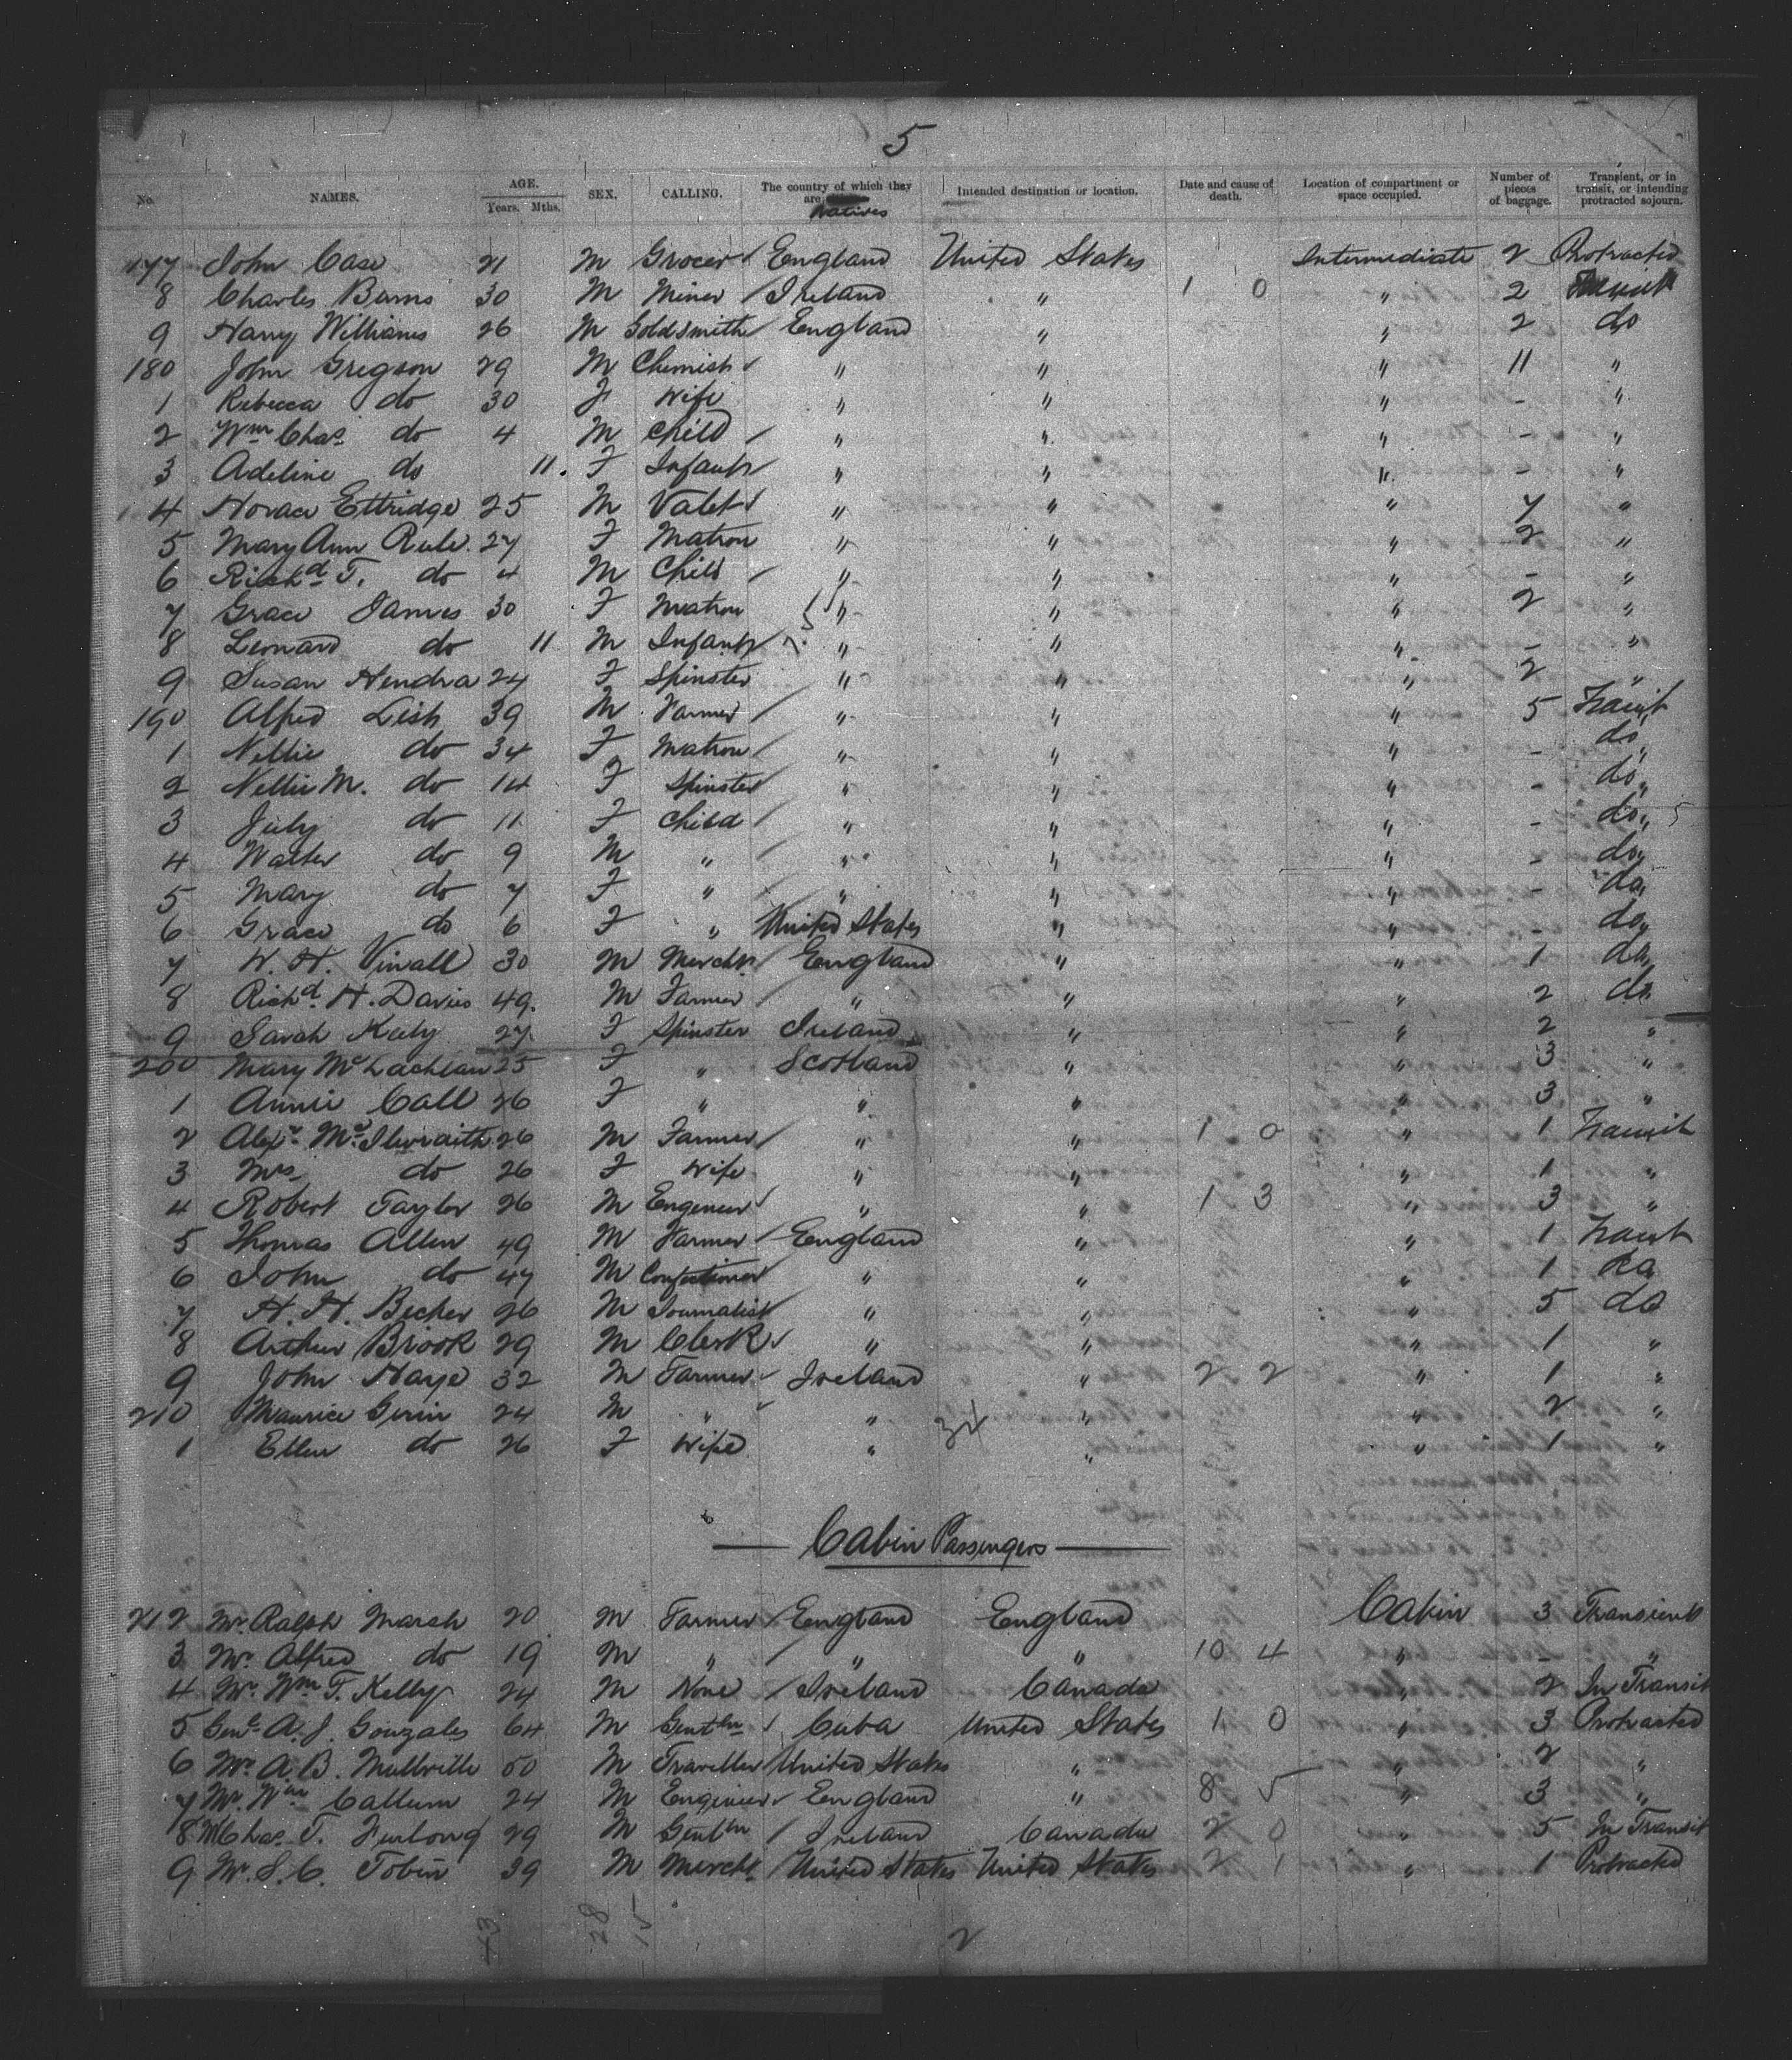 5
No. NAMES. AGE. Years. Mths. SEX. CALLING. The country of which they are Natives Intended destination or location. Date and cause of death. Location of compartment or space occupied. Number of pieces of baggage. Transient, or in transit, or intending protracted sojourn.
177 John Case 21 M Grocer England United States Intermediate 2 Protracted
8 Charles Burns 30 M Miner Ireland " 1 0 " 2 Transit
9 Harry Williams 26 M Goldsmith England " " 2 do
180 John Gregson 29 M Chemist " " " 11 "
1 Rebecca do 30 F Wife " " " - "
2 Wm Chas. do 4 M Child " " " - "
3 Adeline do 11. F Infant " " " - "
4 Horace Ettridge 25 M Valet " " " 7 "
5 Mary Ann Rule. 27 F Matron " " " 2 "
6 Richd T. do 4 M Child " " " - "
7 Grace James 30 F Matron " " " 2 "
8 Leonard do 11 M Infant " " " - "
9 Susan Hendra 24 F Spinster " " " 2 "
190 Alfred Lish 39 M Farmer " " " 5 Transit
1 Nellie do 34 F Matron " " " - do
2 Nellie M. do 14 F Spinster " " " - do
3 July do 11 F Child " " " - do
4 Walter do 9 M " " " " - do
5 Mary do 7 F " " " " - do
6 Grace do 6 F " United States " " - do
7 W. H. Vinall 30 M Mercht England " " 1 do
8 Richd H. Davies 49. M Farmer " " " 2 do
9 Sarah Kiely 27 F Spinster Ireland " " 2 "
200 Mary McLachlan 25 F " Scotland " " 3 "
1 Annie Call 26 F " " " " 3 "
2 Alexr McIlwraith 26 M Farmer " " 1 0 " 1 Transit
3 Mrs do 26 F Wife " " " 1 "
4 Robert Taylor 26 M Engineer " " 1 3 " 3 "
5 Thomas Allen 49 M Farmer England " " 1 Transit
6 John do 47 M Confectioner " " " 1 do
7 H. H. Becher 26 M Journalist " " " 5 do
8 Arthur Brook 29 M Clerk " " " 1 "
9 John Haye 32 M Farmer Ireland " 2 2 " 1 "
210 Maurice Gerin 24 M " " 34 " " 2 "
1 Ellen do 26 F Wife " " " 1 "
Cabin Passengers
212 Mr Ralph Marsh 20 M Farmer England England Cabin 3 Transient
3 Mr Alfred do 19 M " " " 10 4 " - "
4 Mr Wm T. Kelly 24 M None Ireland Canada " 2 In Transit
5 Genl A. J. Gonzales 64 M Gentln Cuba United States 1 0 " 3 Protracted
6 Mr A. B. Mullville 50 M Traveller United States " " 2 "
7 Mr Wm Callum 24 M Engineer England " 8 " 3 "
8 Mr Chas. T. Furlong 29 M Gentln Ireland Canada 2 0 " 5 In Transit
9 Mr. S. C. Tobin 39 M Mercht United States United States 2 1 " 1 Protracted
28 15 2